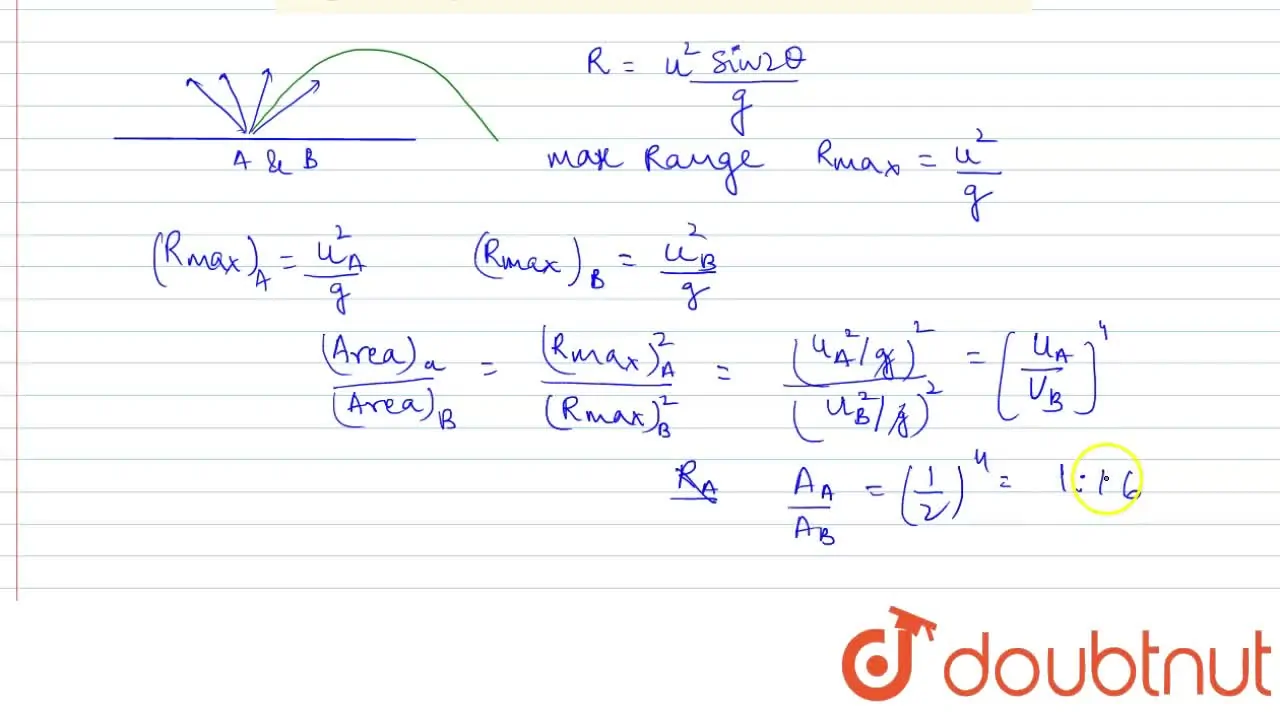 R = u² sin2θ / g
A & B
max Range Rmax = u² / g
(Rmax)A = u²A / g (Rmax)B = u²B / g
(Area)a / (Area)B = (Rmax)²A / (Rmax)²B = (uA²/g)² / (uB²/g)² = [uA / UB]⁴
RA AA / AB = (1/2)⁴ = 1:16
doubtnut